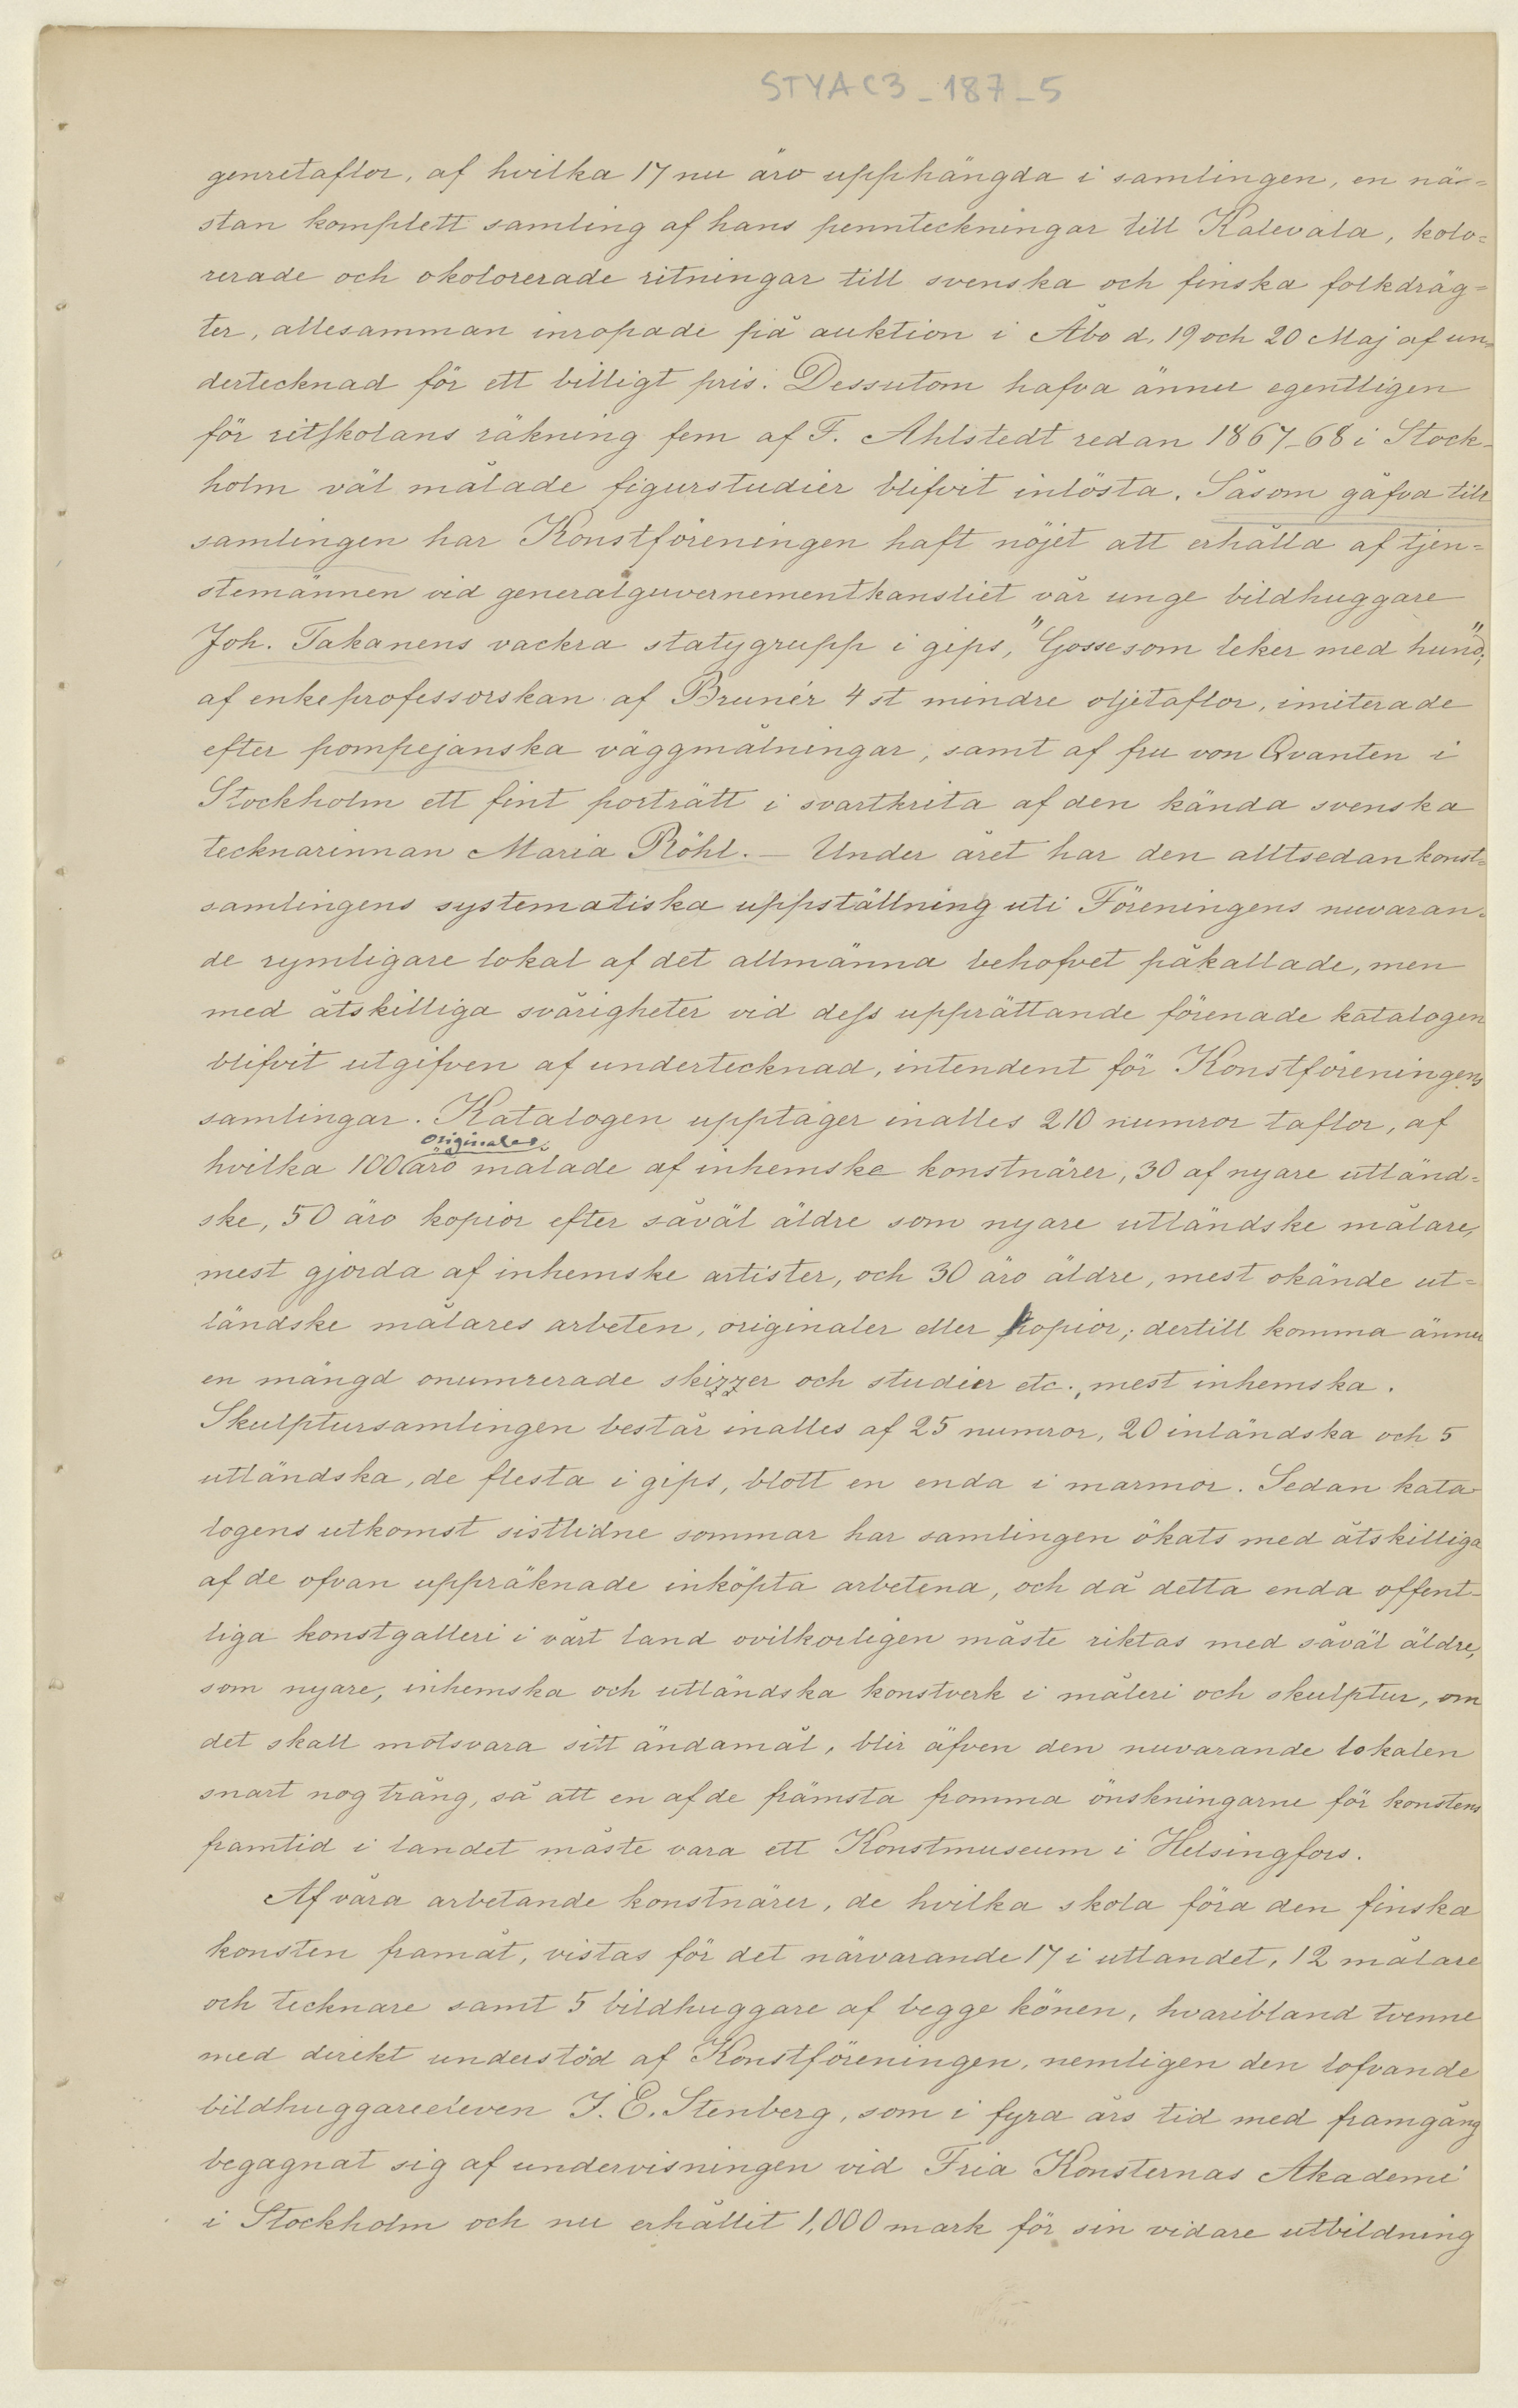 STYA C3_187_5
genretaflor, af hvilka 17 nu äro upphängda i samlingen, en nä-
stan komplett samling af hans pennteckningar till Kalevala, kolo=
rerade och okolorerade ritningar till svenska och finska folkdräg=
ter, allesamman inropade på auktion i Åbo d. 19 och 20 Maj af un=
dertecknad för ett billigt pris. Dessutom hafva ännu egentligen
för ritskolans räkning fem af F. Ahlstedt redan 1867-68 i Stock-
holm väl målade figurstudier blifvit inlösta. Såsom gåfva till
samlingen har Konstföreningen haft nöjet att erhålla af tjen=
stemännen vid generalguvernementkansliet vår unge bildhuggare
Joh. Takanens vackra statygrupp i gips, "Gosse som leker med hund",
af enkeprofessorskan af Brunér 4 st mindre oljetaflor, imiterade
efter pompejanska väggmålningar, samt af fru von Qvanten i
Stockholm ett fint porträtt i svartkrita af den kända svenska
tecknarinnan Maria Röhl. — Under året har den alltsedan konst=
samlingens systematiska uppställning uti Föreningens nuvaran=
de rymligare lokal af det allmänna behofvet påkallade, men
med åtskilliga svårigheter vid dess upprättande förenade katalogen
blifvit utgifven af undertecknad, intendent för Konstföreningens
samlingar. Katalogen upptager inalles 210 numror taflor, af
originaler,
hvilka 100 äro målade af inhemske konstnärer, 30 af nyare utländ=
ske, 50 äro kopior efter såväl äldre som nyare utländske målare,
mest gjorda af inhemske artister, och 30 äro äldre, mest okände ut=
ländske målares arbeten, originaler eller kopior; dertill komma ännu
en mängd onumrerade skizzer och studier etc., mest inhemska.
Skulptursamlingen består inalles af 25 numror, 20 inländska och 5
utländska, de flesta i gips, blott en enda i marmor. Sedan kata-
logens utkomst sisttidne sommar har samlingen ökats med åtskilliga
af de ofvan uppräknade inköpta arbetena, och då detta enda offent-
liga konstgalleri i vårt land ovilkorligen måste riktas med såväl äldre,
som nyare, inhemska och utländska konstverk i måleri och skulptur, om
det skall motsvara sitt ändamål, blir äfven den nuvarande lokalen
snart nog trång, så att en af de främsta fromma önskningarne för konstens
framtid i landet måste vara ett Konstmuseum i Helsingfors.
Af våra arbetande konstnärer, de hvilka skola föra den finska
konsten framåt, vistas för det närvarande 17 i utlandet, 12 målare
och tecknare samt 5 bildhuggare af begge könen, hvaribland tvenne
med direkt understöd af Konstföreningen, nemligen den lofvande
bildhuggareeleven J. E. Stenberg, som i fyra års tid med framgång
begagnat sig af undervisningen vid Fria Konsternas Akademi
i Stockholm och nu erhållit 1,000 mark för sin vidare utbildning